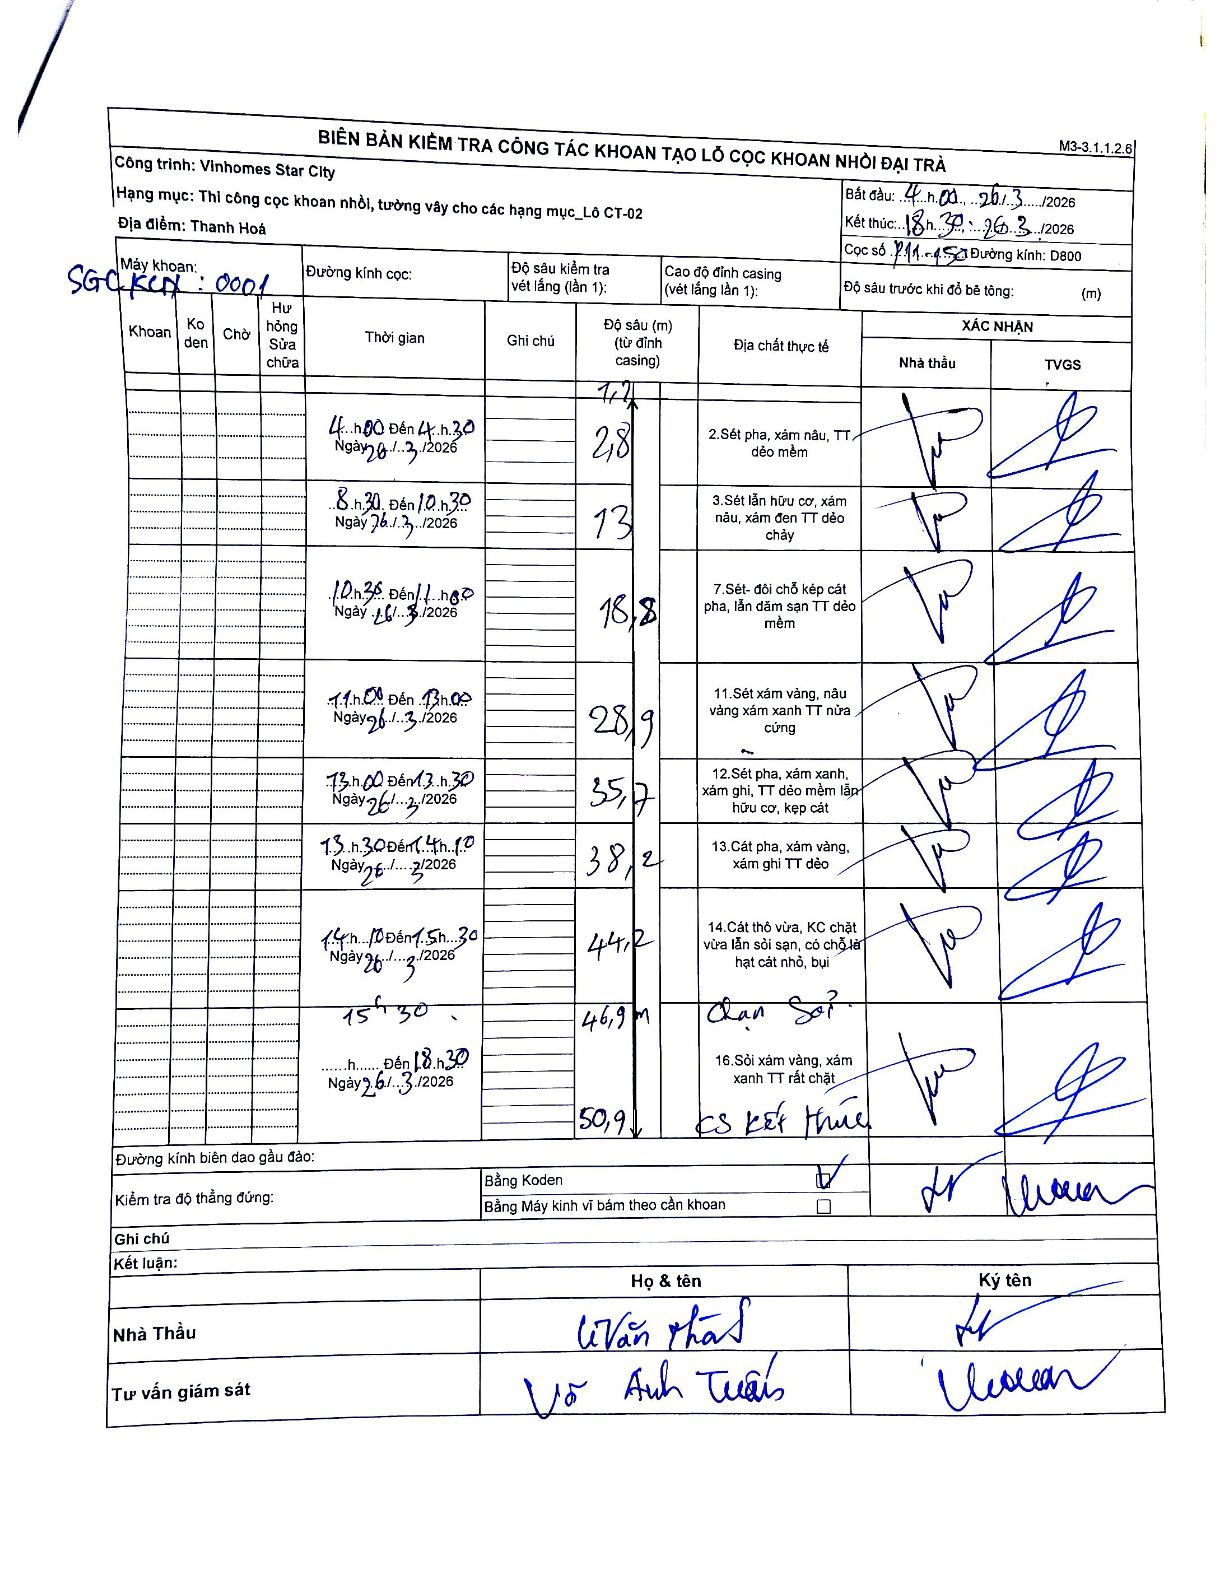 M3-3.1.1.2.6
BIÊN BẢN KIỂM TRA CÔNG TÁC KHOAN TẠO LỖ CỌC KHOAN NHỒI ĐẠI TRÀ
Công trình: Vinhomes Star City
Hạng mục: Thi công cọc khoan nhồi, tường vây cho các hạng mục_Lô CT-02
Địa điểm: Thanh Hoá
Bắt đầu: 4 h 00, 26/3/2026
Kết thúc: 18h 30, 26.3/2026
Cọc số Đường kính: D800
Máy khoan:
0001
Đường kính cọc:
Độ sâu kiểm tra vét lắng (lần 1):
Cao độ đỉnh casing (vét lắng lần 1):
Độ sâu trước khi đổ bê tông: (m)
Khoan
Ko den
Chờ
Hư hỏng Sửa chữa
Thời gian
Ghi chú
Độ sâu (m) (từ đỉnh casing)
Địa chất thực tế
XÁC NHẬN
Nhà thầu
TVGS
1,2
4 h 00 Đến 4 h 30
Ngày 26/3/2026
2,8
2.Sét pha, xám nâu, TT
dẻo mềm
8 h 30 Đến 10 h 30
Ngày 26/3/2026
13
3.Sét lẫn hữu cơ, xám
nâu, xám đen TT dẻo
chảy
10 h 30 Đến 11 h 00
Ngày 26/3/2026
18,8
7.Sét- đôi chỗ kép cát
pha, lẫn dăm sạn TT dẻo
mềm
11 h 00 Đến 13h 00
Ngày 26/3/2026
28,9
11.Sét xám vàng, nâu
vàng xám xanh TT nửa
cứng
13 h 00 Đến 13 h 30
Ngày 26/3/2026
35,7
12.Sét pha, xám xanh,
xám ghi, TT dẻo mềm lẫn
hữu cơ, kẹp cát
13 h 30 Đến 14h 10
Ngày 26/3/2026
38,2
13.Cát pha, xám vàng,
xám ghi TT dẻo
14 h 10 Đến 15h 30
Ngày 26/3/2026
44,2
14.Cát thô vừa, KC chặt
vừa lẫn sỏi sạn, có chỗ là
hạt cát nhỏ, bụi
15h 30
46,9 m
Chạn Sỏi
......h...... Đến 18 h 30
Ngày 26/3/2026
16.Sỏi xám vàng, xám
xanh TT rất chặt
50,9
KS Kết thúc
Đường kính biên dao gầu đào:
Kiểm tra độ thẳng đứng:
Bằng Koden
Bằng Máy kinh vĩ bám theo cần khoan
Ghi chú
Kết luận:
Họ & tên
Ký tên
Nhà Thầu
Tư vấn giám sát
Võ Anh Tuấn